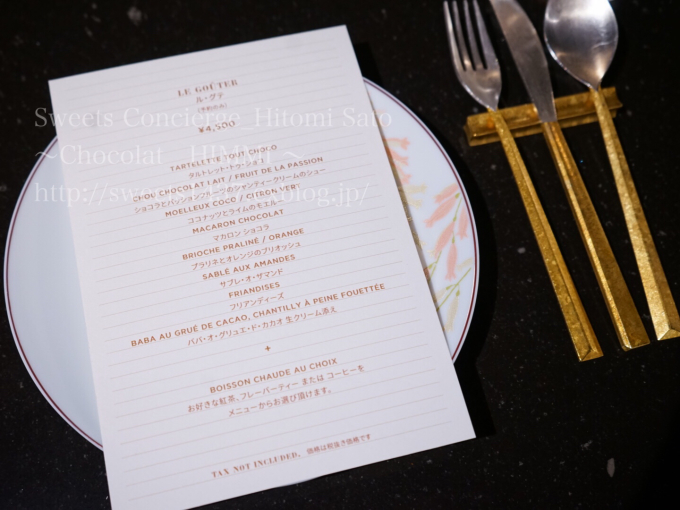 LE GOÛTER
ル・グテ
¥4,500
TARTELETTE TOUT CHOCO
タルトレット・トゥ・ショコ
CHOU CHOCOLAT LAIT / FRUIT DE LA PASSION
ショコラとパッションフルーツのシャンティークリームのシュー
MOELLEUX COCO / CITRON VERT
ココナッツとライムのモエルー
MACARON CHOCOLAT
マカロン ショコラ
BRIOCHE PRALINÉ / ORANGE
プラリネとオレンジのブリオッシュ
SABLÉ AUX AMANDES
サブレ・オ・ザマンド
FRIANDISES
フリアンディーズ
BABA AU GRUÉ DE CACAO, CHANTILLY À PEINE FOUETTÉE
ババ・オ・グリュエ・ド・カカオ 生クリーム添え
+
BOISSON CHAUDE AU CHOIX
お好きな紅茶、フレーバーティー または コーヒーを
メニューからお選び頂けます。
TAX NOT INCLUDED. 価格は税抜き価格です
Sweets Concierge_Hitomi Sato
～Chocolat
http://swee
olog.jp/